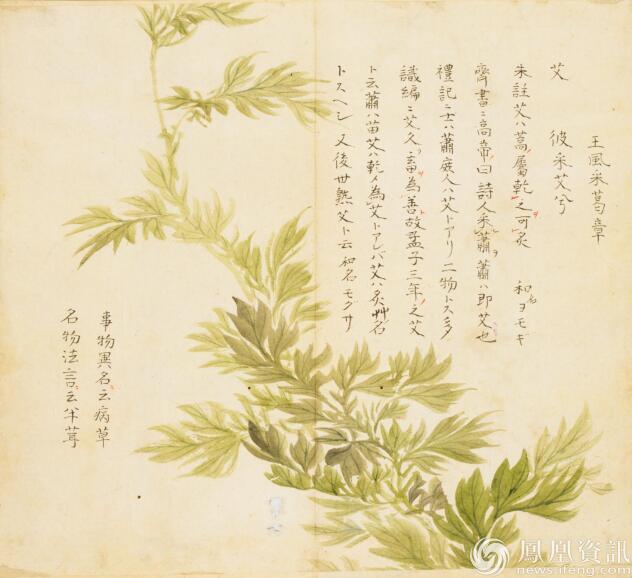 王風采葛章
艾　彼采艾兮
朱註艾ハ蒿屬乾之可灸　和名ヨモギ
齊書ニ高帝曰詩人采蕭蕭ハ即艾也
禮記ニ士ハ蕭庶人ハ艾トアリ二物トス
識編ニ艾久畜為善故孟子三年之艾
ト云蕭ハ苗艾ハ乾〆為艾トアレバ艾ハ灸艸名
トスヘシ又後世熟艾ト云和名モグサ
事物異名云病草
名物法言云半茸
鳳凰資訊
news.ifeng.com